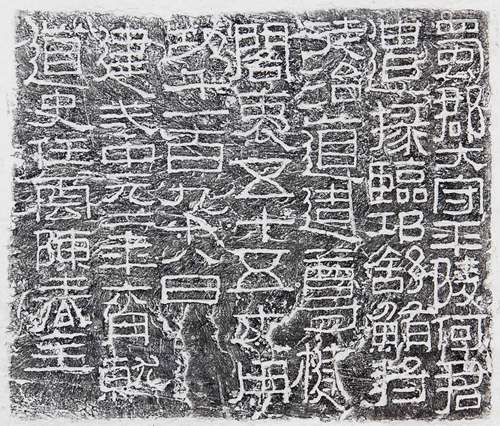 蜀郡大守平陵何君
遣掾臨邛舒鮪將
徒治道造尊楗
閣袤五十五丈用
㓛千一百九十八日
建武中元二年六月就
道史任雲陳春主